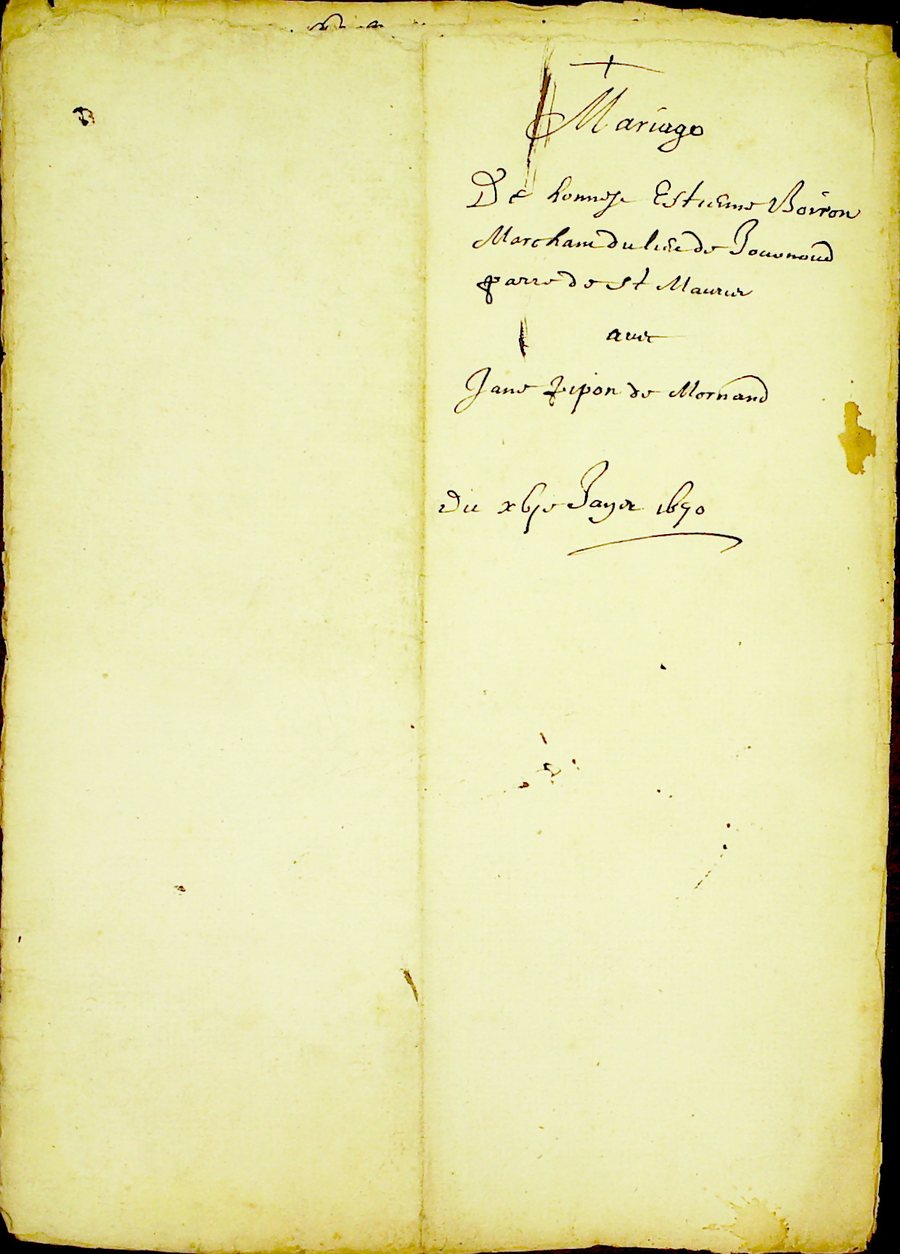 Mariage
De honneste Estienne Boiron
Marchant du lieu de Jouenoud
parre de St Maurice
avec
Jane pipon de Mornand
Du Janer 1670